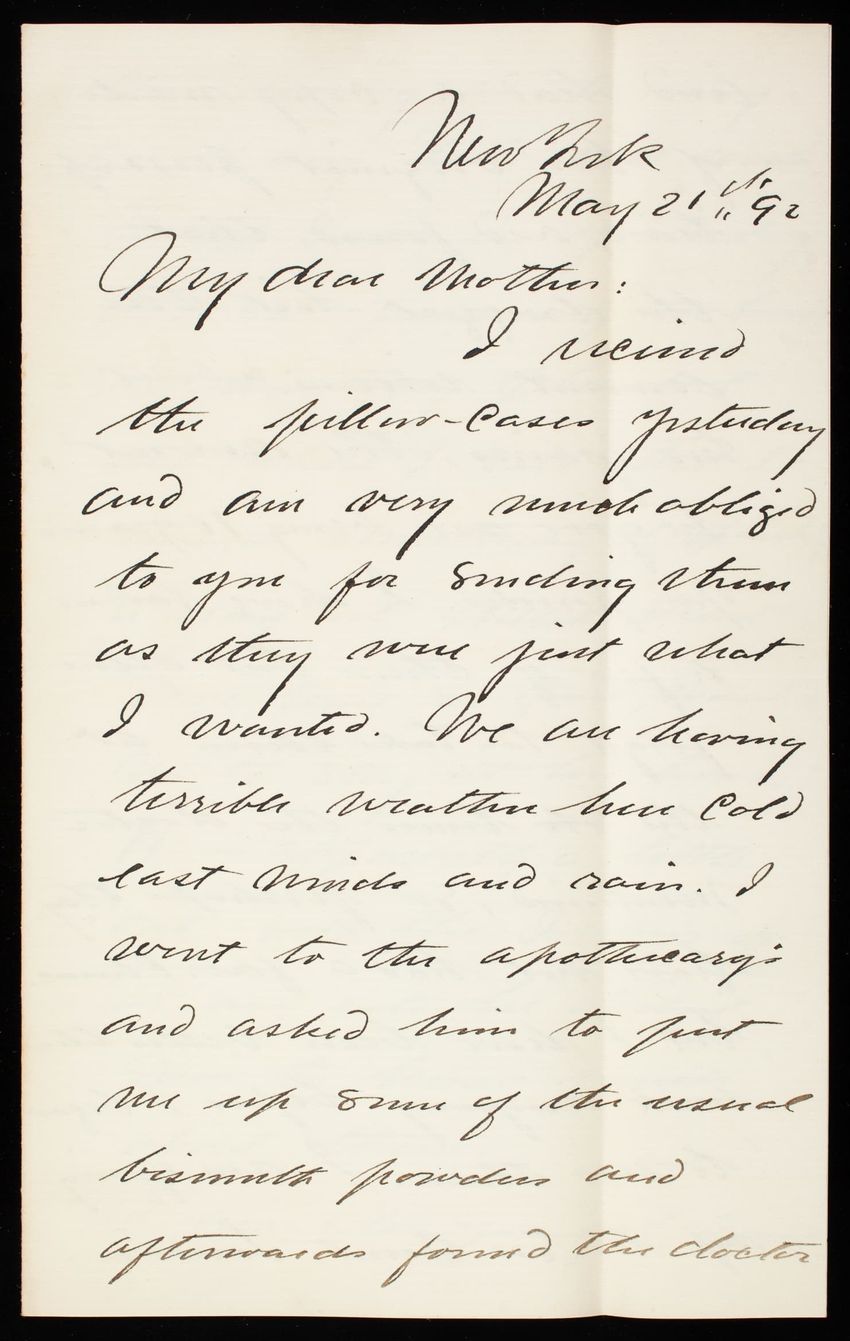 New York
May 21st "92
My dear Mother:
I received
the pillow-cases yesterday
and am very much obliged
to you for sending them
as they were just what
I wanted. We are having
terrible weather here cold
east winds and rain. I
went to the apothecary's
and asked him to put
me up some of the usual
bismuth powders and
afterwards found the doctor